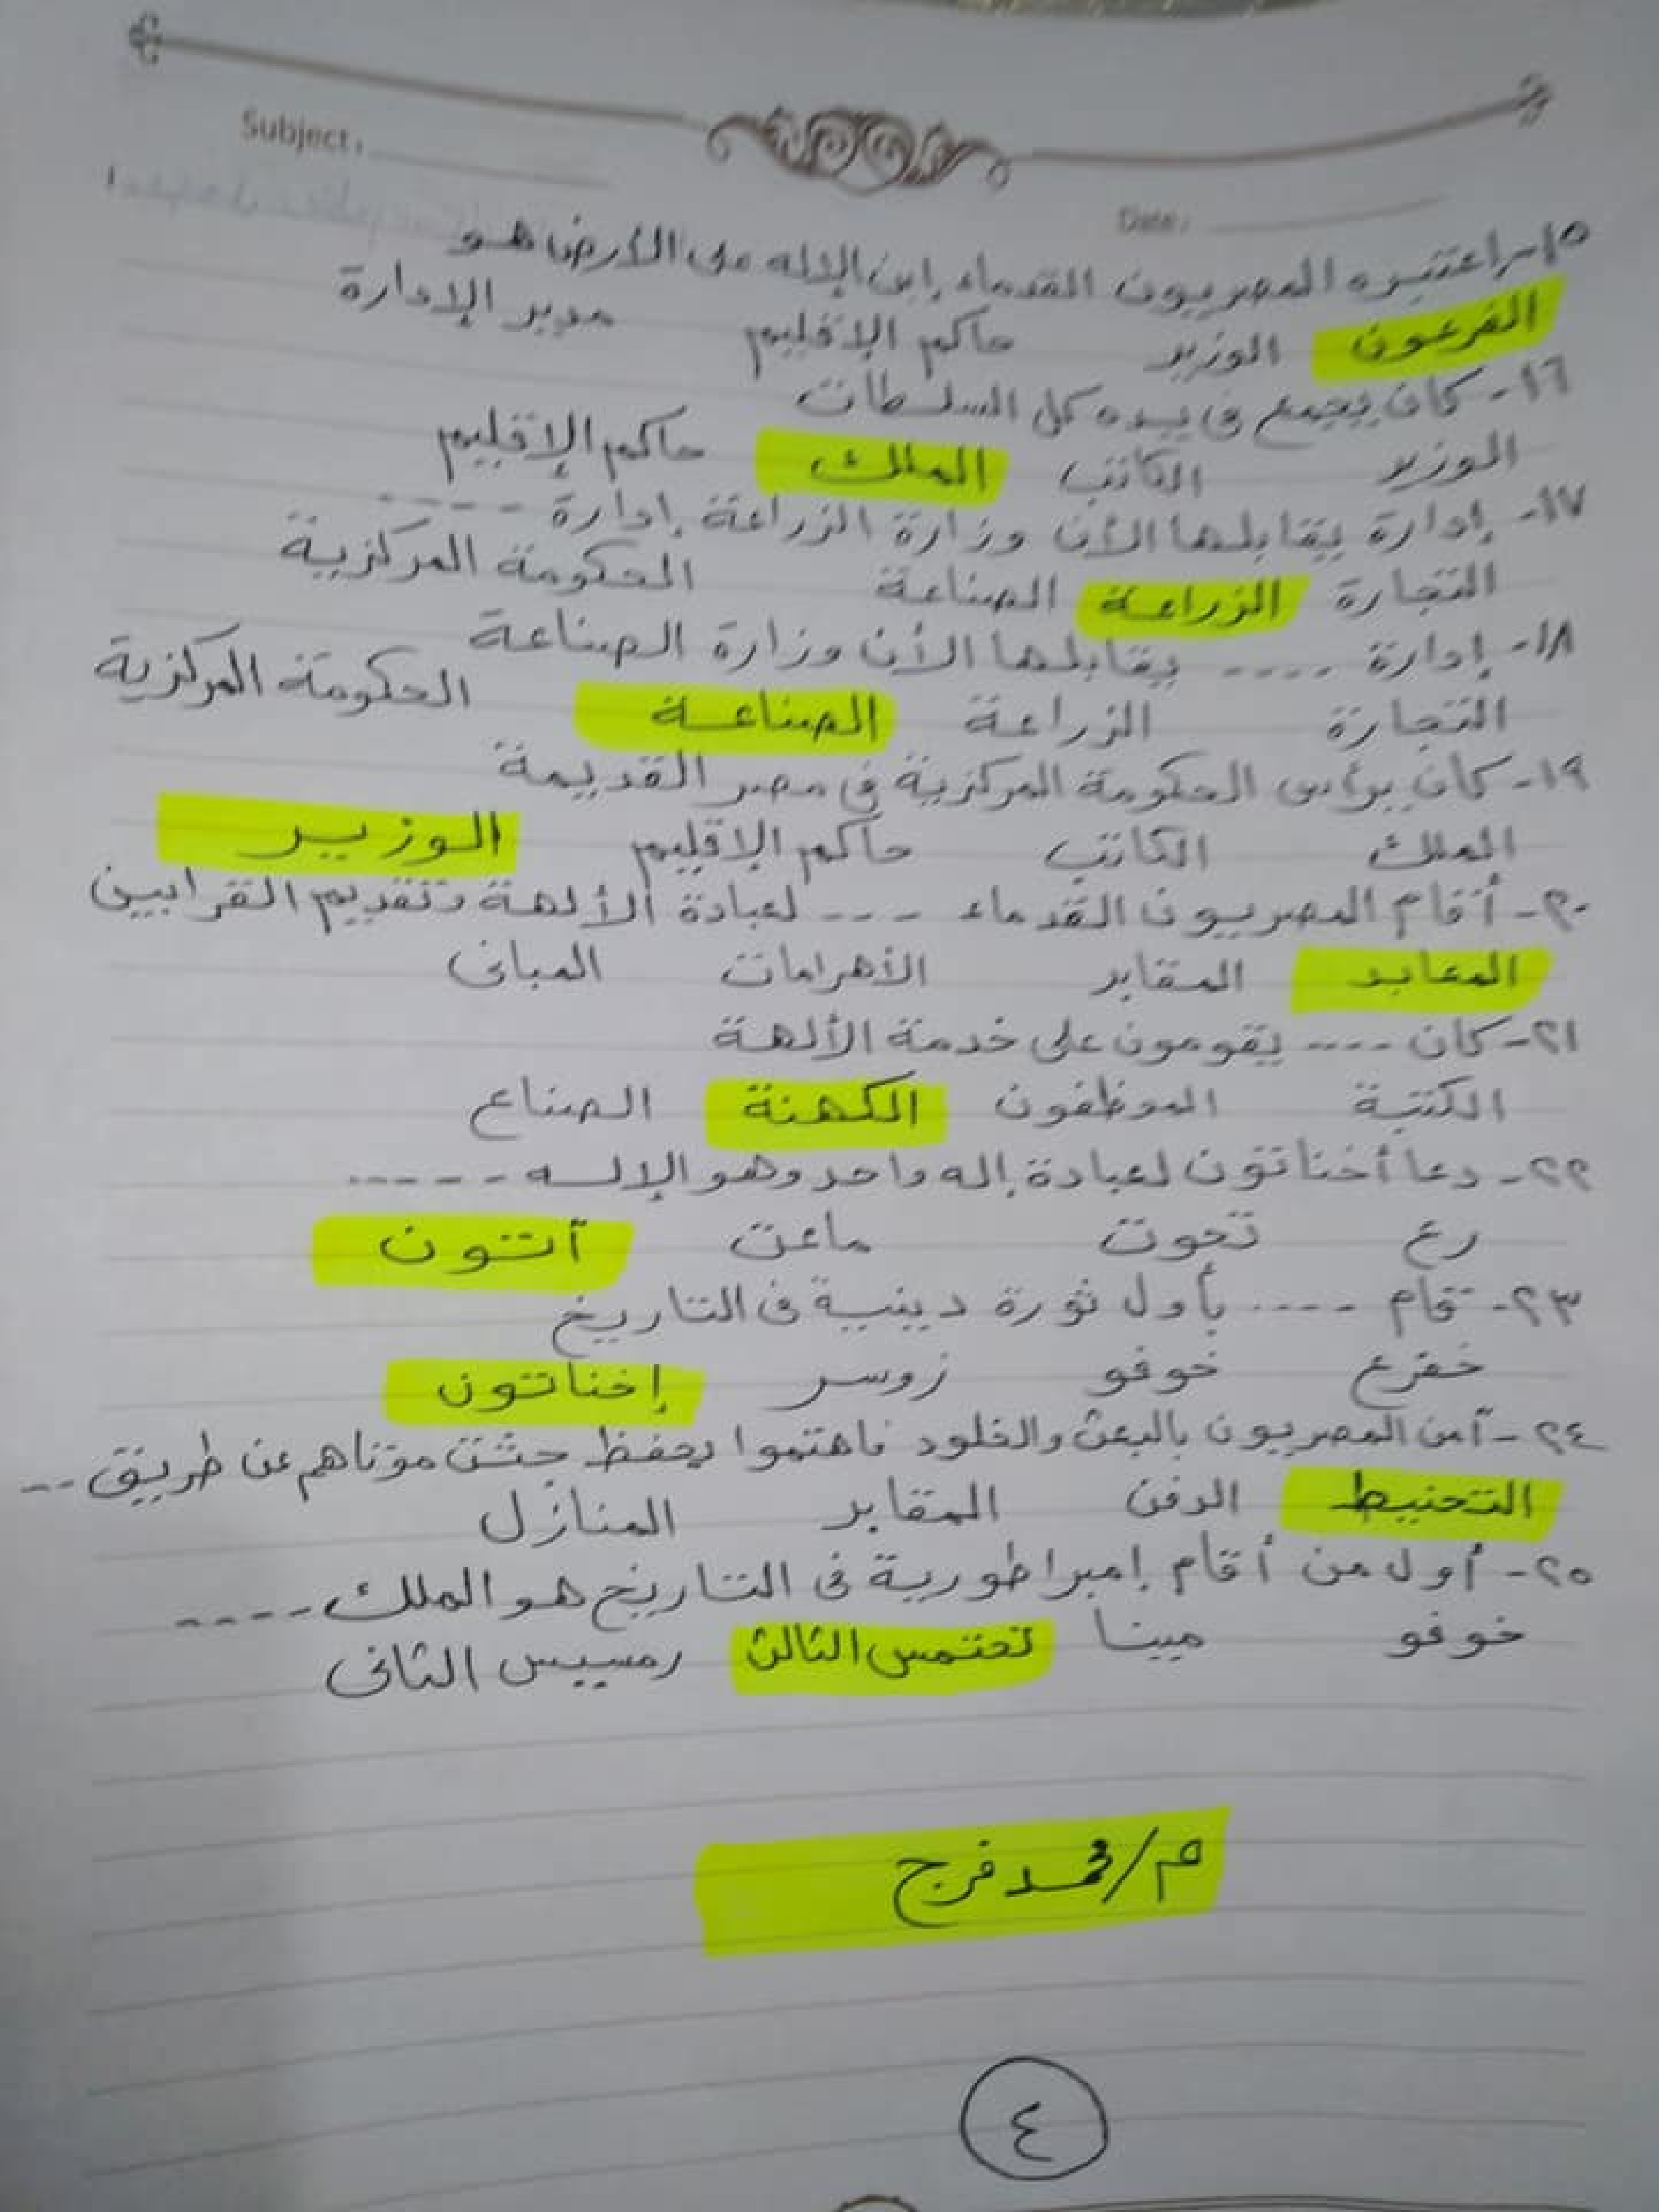 Subject:
Date:
١٥- اعتبره المصريون القدماء إبن الإله على الأرض هو
الفرعون الوزير حاكم الإقليم مدير الإدارة
١٦- كان يجمع فى يده كل السلطات
الوزير الكاتب الملك حاكم الإقليم
١٧- إدارة يقابلها الأن وزارة الزراعة إدارة ----
التجارة الزراعة الصناعة الحكومة المركزية
١٨- إدارة ---- يقابلها الأن وزارة الصناعة
التجارة الزراعة الصناعة الحكومة المركزية
١٩- كان يرأس الحكومة المركزية فى مصر القديمة
الملك الكاتب حاكم الإقليم الوزير
٢٠- أقام المصريون القدماء --- لعبادة الألهة وتقديم القرابين
المعابد المقابر الأهرامات المبانى
٢١- كان ---- يقومون على خدمة الألهة
الكتبة الموظفون الكهنة الصناع
٢٢- دعا أخناتون لعبادة إله واحد وهو الإله -----
رع تحوت ماعت آتون
٢٣- قام ---- بأول ثورة دينية فى التاريخ
خفرع خوفو زوسر إخناتون
٢٤- آمن المصريون بالبعث والخلود فاهتموا بحفظ جثث موتاهم عن طريق --
التحنيط الدفن المقابر المنازل
٢٥- أول من أقام إمبراطورية فى التاريخ هو الملك ----
خوفو مينا تحتمس الثالث رمسيس الثانى
م/محمد فرج
٤